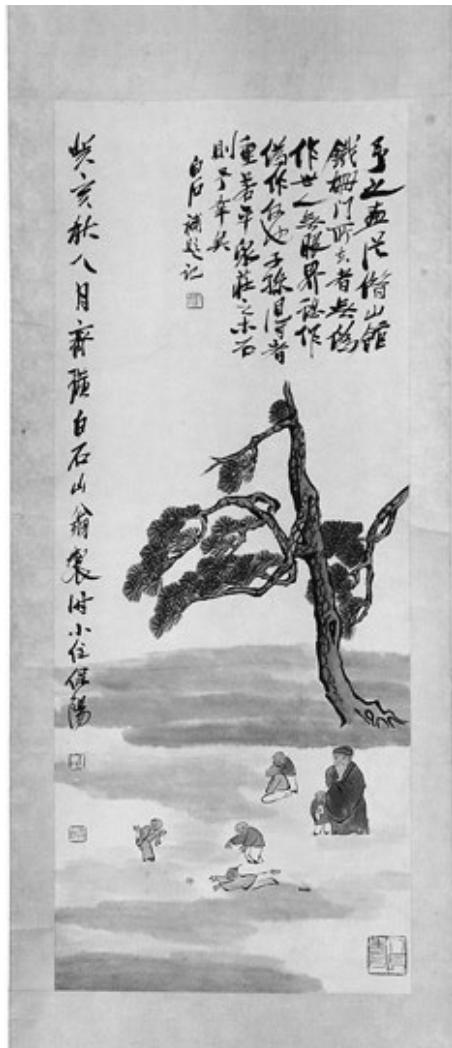 予之畫從借山館
鐵柵門所去者無偽
作世人無眼界認作
偽作也子孫得者
重若平泉莊之木石
則予幸矣
白石補題記
癸亥秋八月齊璜白石山翁製時小住保陽